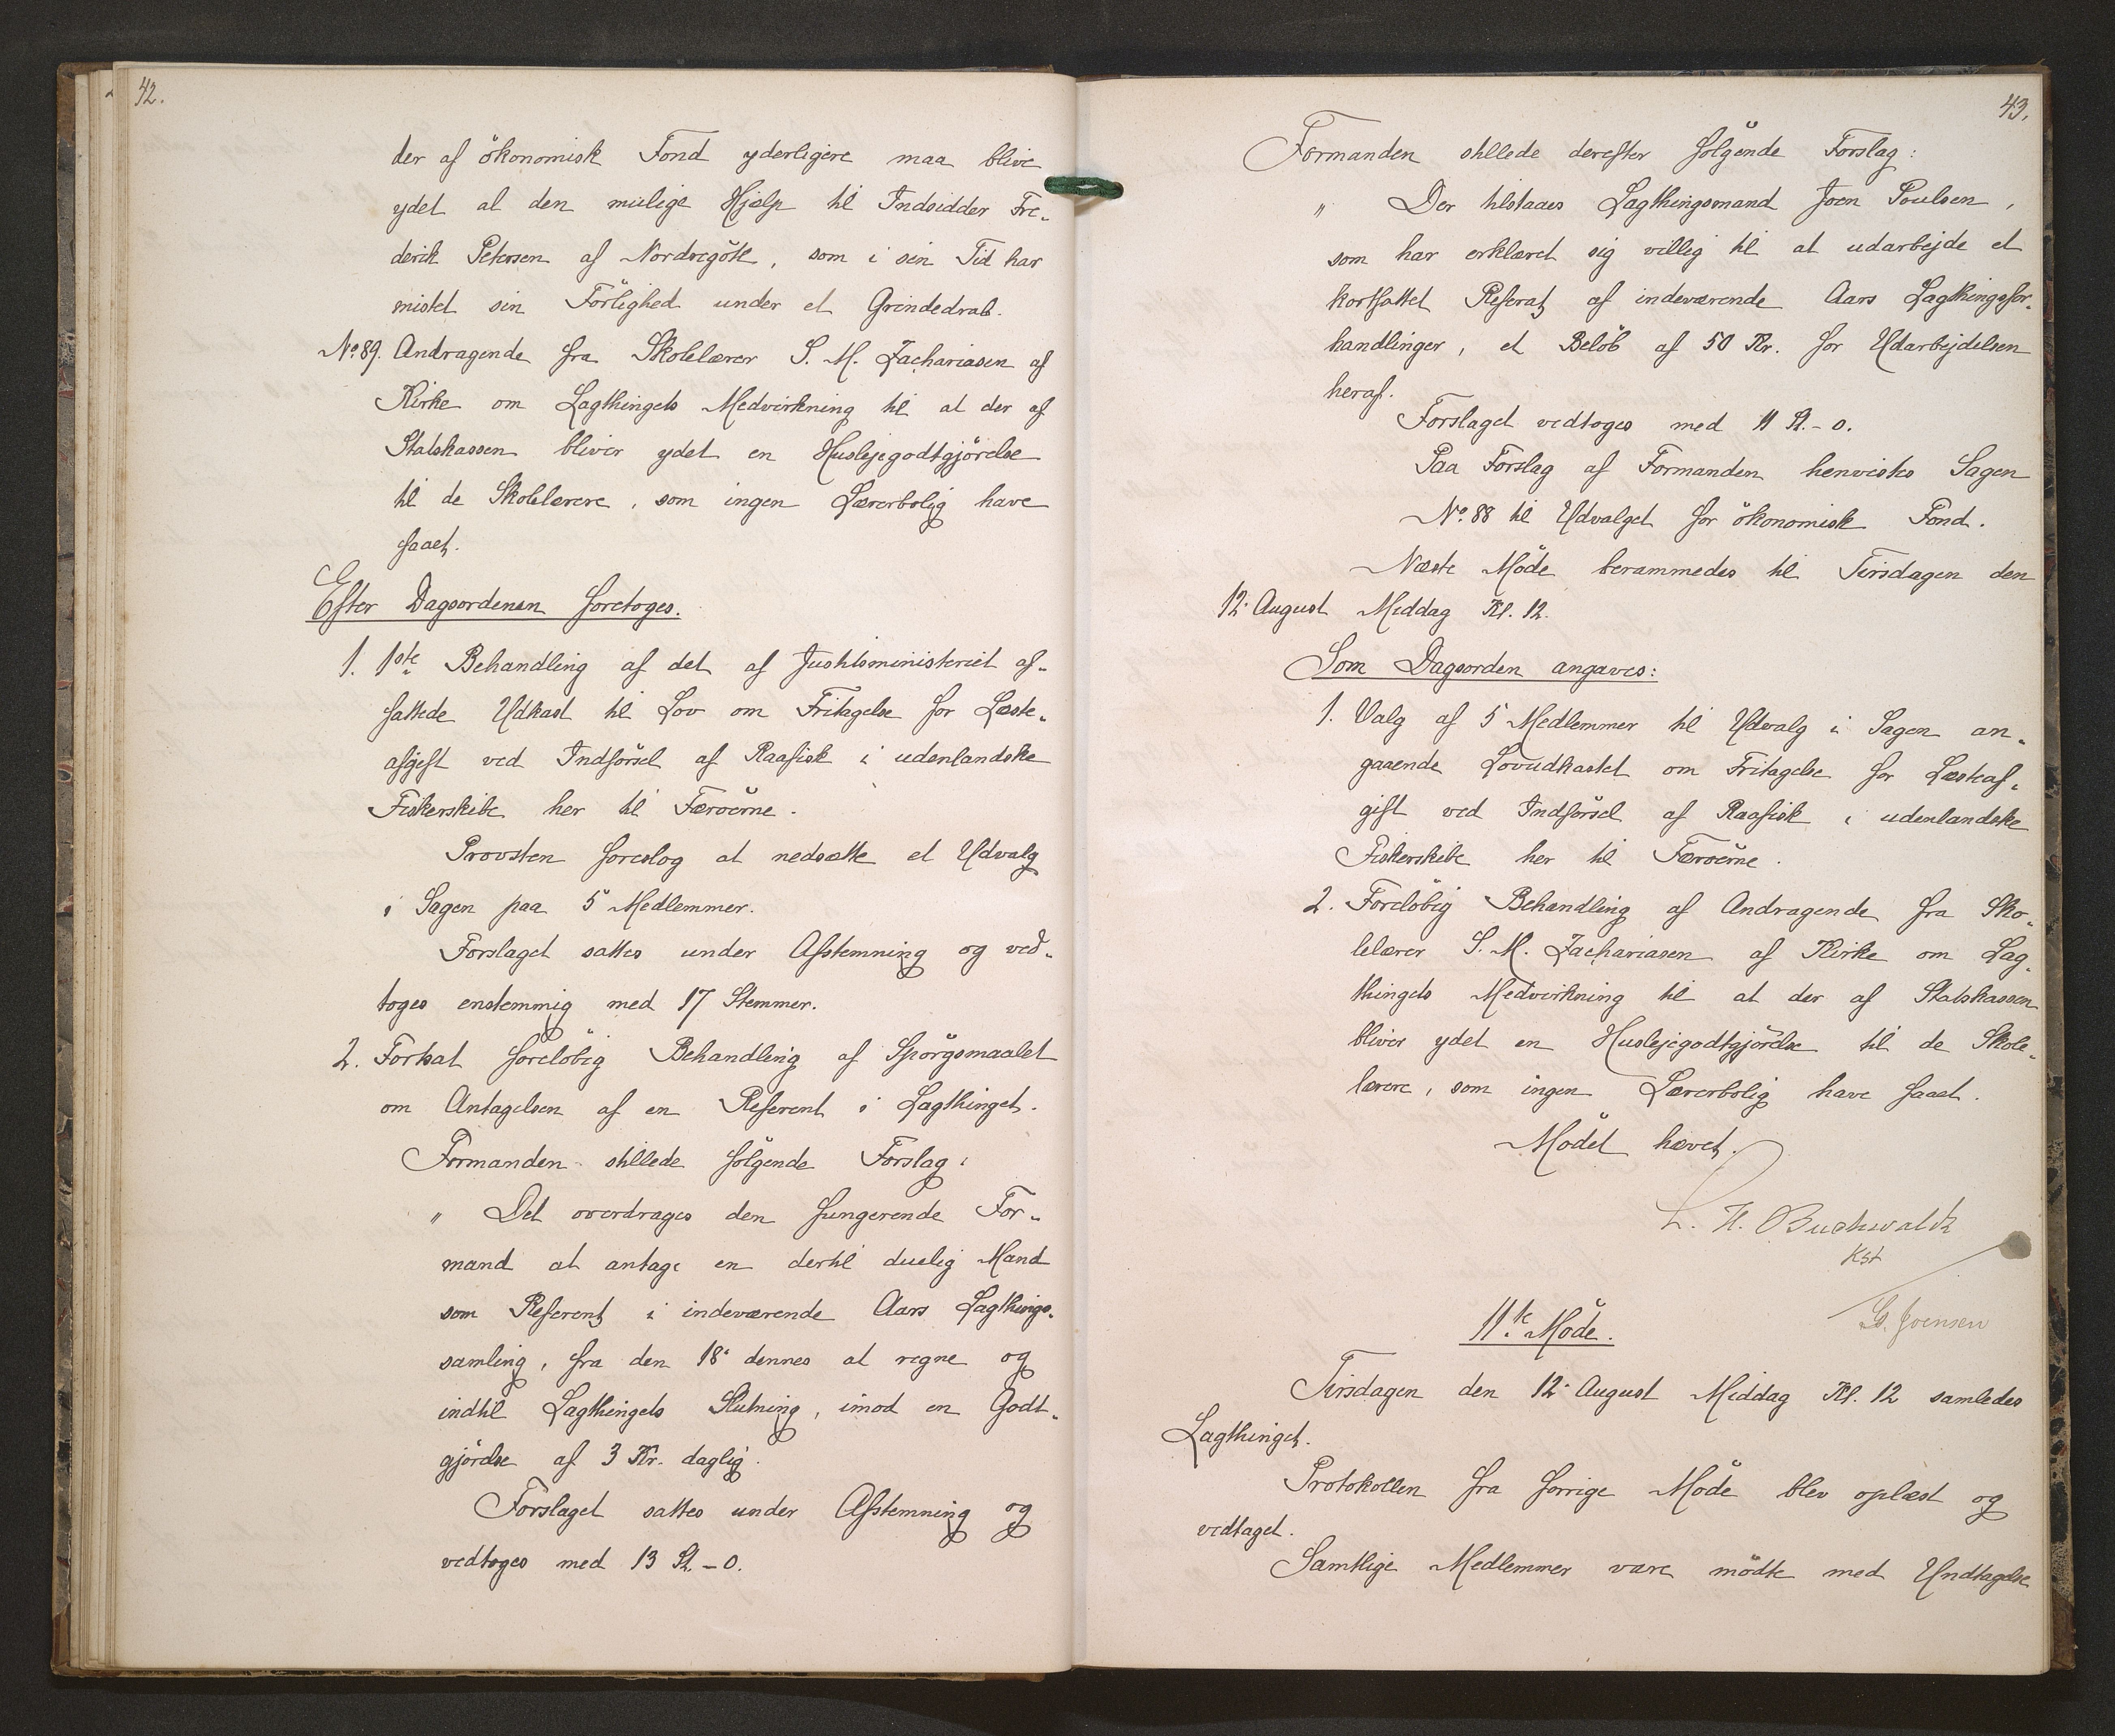 42.
der af ökonomisk Fond yderligere maa blive
ydet al den mulige Hjælp til Indsidder Fre-
derik Petersen af Nordregöte, som i sin Tid har
mistet sin Förlighed under et Grindedrab.
No. 89. Andragende fra Skolelærer S. M. Zachariasen af
Kirke om Lagthingets Medvirkning til at der af
Statskassen bliver ydet en Huslejegodtgjörelse
til de Skolelærere, som ingen Lærerbolig have
faaet.
Efter Dagsordenen foretoges.
1. 1ste Behandling af det af Justitsministeriet af-
fattede Udkast til Lov om Fritagelse for Læste-
afgift ved Indförsel af Raafisk i udenlandske
Fiskerskibe her til Færöerne.
Provsten foreslog at nedsætte et Udvalg
i Sagen paa 5 Medlemmer.
Forslaget sattes under Afstemning og ved-
toges enstemmig med 17 Stemmer.
2. Fortsat foreløbig Behandling af Spörgsmaalet
om Antagelsen af en Referent i Lagthinget.
Formanden stillede fölgende Forslag:
" Det overdrages den fungerende For-
mand at antage en dertil duelig Mand
som Referent i indeværende Aars Lagthings-
samling, fra den 18' dennes at regne og
indtil Lagthingets Slutning, imod en Godt-
gjörelse af 3 Kr. daglig.
Forslaget sattes under Afstemning og
vedtoges med 13 St. - 0.
43.
Formanden stillede derefter fölgende Forslag:
" Der tilstaaes Lagthingsmand Joen Poulsen,
som har erklæret sig villig til at udarbejde et
kortfattet Referat af indeværende Aars Lagthingsfor-
handlinger, et Belöb af 50 Kr. for Udarbejdelsen
heraf.
Forslaget vedtoges med 11 St. - 0.
Paa Forslag af Formanden henvistes Sagen
No. 88 til Udvalget for ökonomisk Fond.
Næste Möde berammedes til Tirsdagen den
12' August Middag Kl. 12.
Som Dagsorden angaves:
1. Valg af 5 Medlemmer til Udvalg i Sagen an-
gaaende Lovudkastet om Fritagelse for Læsteaf-
gift ved Indförsel af Raafisk i udenlandske
Fiskerskibe her til Færöerne.
2. Forelöbig Behandling af Andragende fra Sko-
lelærer S. M. Zachariasen af Kirke om Lag-
thingets Medvirkning til at der af Statskassen
bliver ydet en Huslejegodtgjörelse til de Skole-
lærere, som ingen Lærerbolig have faaet.
Mödet hævet.
L. H. Buchwaldt
Kst
G. Joensen
11te Möde.
Tirsdagen den 12' August Middag Kl. 12 samledes
Lagthinget.
Protokollen fra forrige Möde blev oplæst og
vedtaget.
Samtlige Medlemmer vare mödte med Undtagelse